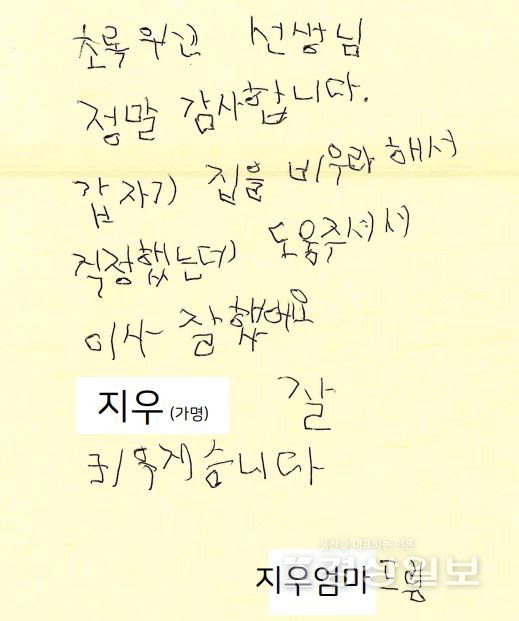 초록우산 선생님
정말 감사합니다.
갑자기 집을 비우라 해서
걱정했는데 도움주셔서
이사 잘 했어요
지우 (가명) 잘
키우게습니다
울산을 대표하는 언론
경상일보
지우엄마 드림